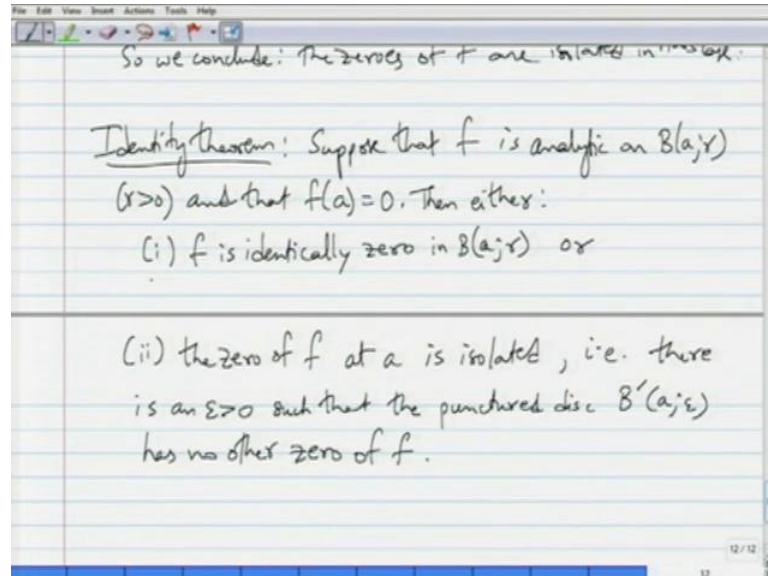 File Edit View Insert Actions Tools Help
So we conclude: The zeroes of f are isolated in this case.
Identity theorem: Suppose that f is analytic on B(a;r)
(r>0) and that f(a)=0. Then either:
(i) f is identically zero in B(a;r) or
(ii) the zero of f at a is isolated, i.e. there
is an ε>0 such that the punctured disc B'(a;ε)
has no other zero of f.
12/12
12